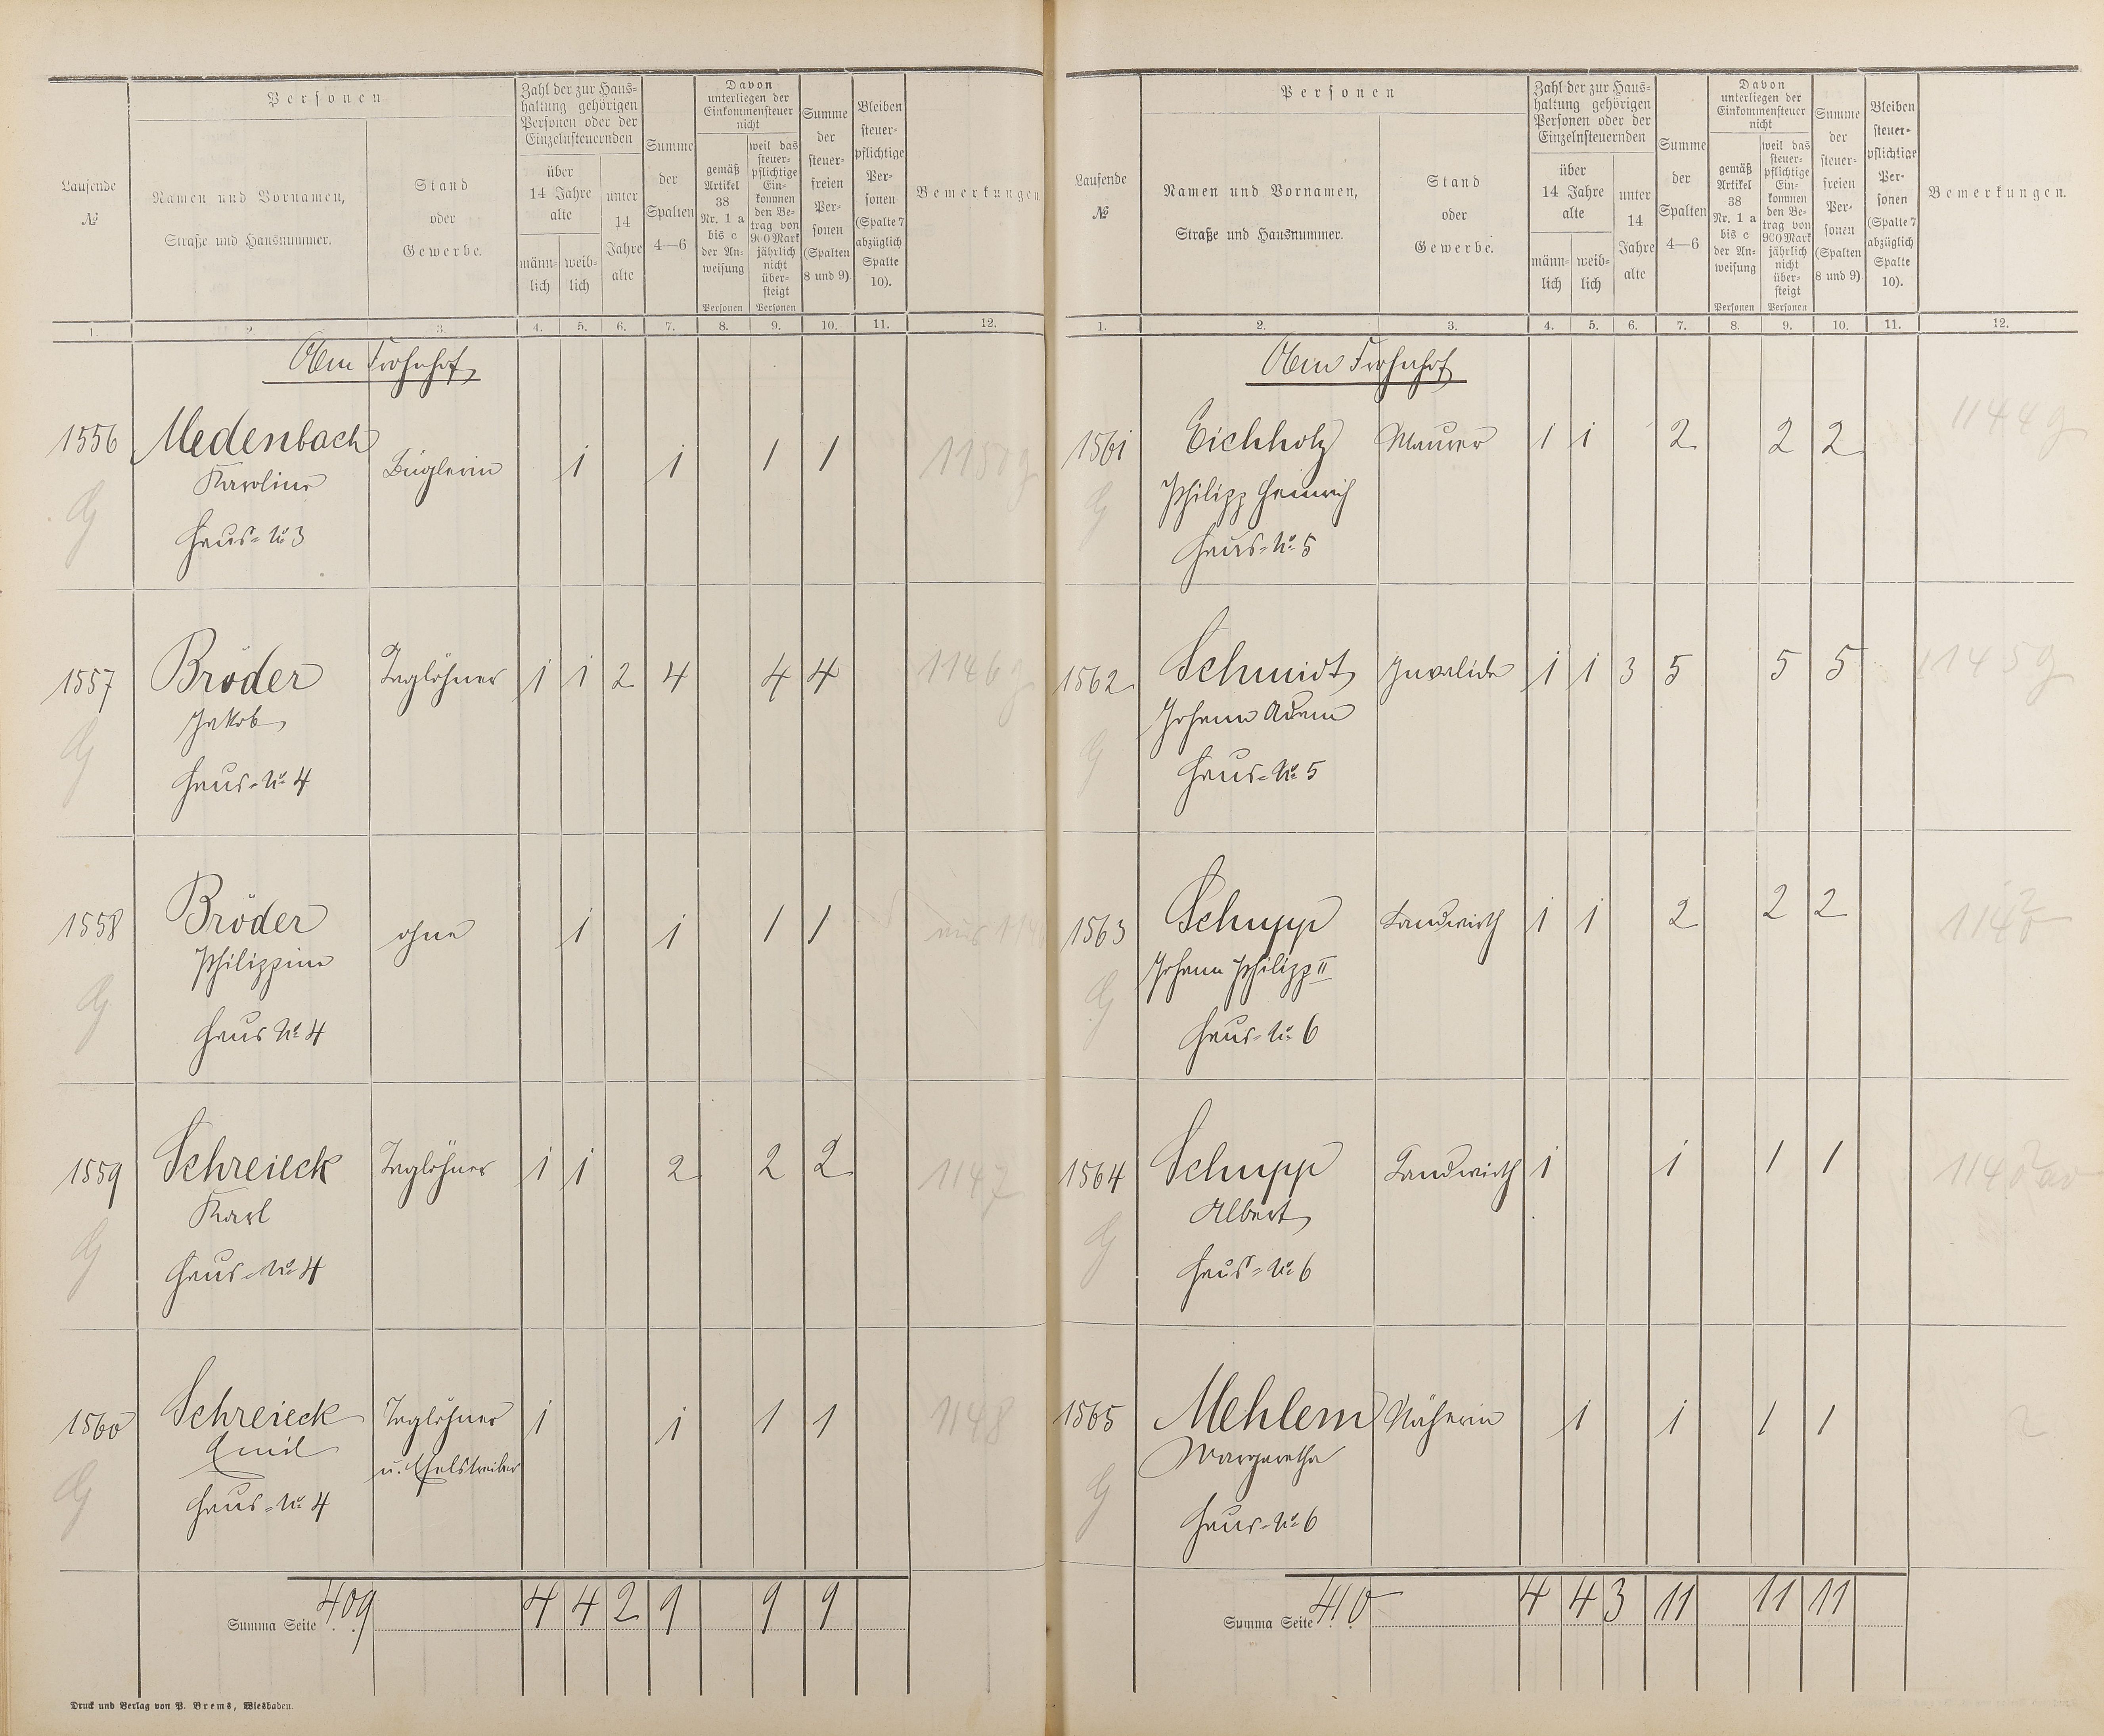 Personen
Laufende
№
Namen und Vornamen,
Straße und Hausnummer.
Stand
oder
Gewerbe.
Zahl der zur Haus-
haltung gehörigen
Personen oder der
Einzelnsteuernden
über
14 Jahre
alte
männ-
lich
weib-
lich
unter
14
Jahre
alte
Summe
der
Spalten
4—6
Davon
unterliegen der
Einkommensteuer
nicht
gemäß
Artikel
38
Nr. 1 a
bis c
der An-
weisung
Personen
weil das
steuer-
pflichtige
Ein-
kommen
den Be-
trag von
900 Mark
jährlich
nicht
über-
steigt
Personen
Summe
der
steuer-
freien
Per-
sonen
(Spalten
8 und 9)
Bleiben
steuer-
pflichtige
Per-
sonen
(Spalte 7
abzüglich
Spalte
10).
Bemerkungen
1. 2. 3. 4. 5. 6. 7. 8. 9. 10. 11. 12.
Oben Frohnhof
1556 Medenbach Büglerin 1 1 1 1 1150 g
Karoline
Haus-No 3
1557 Bröder Taglöhner 1 1 2 4 4 4 1146 g
Jakob
Haus-No 4
1558 Bröder ohne 1 1 1 1
Philippine
Haus No 4
1559 Schreieck Taglöhner 1 1 2 2 2 1147
Karl
Haus-No 4
1560 Schreieck Taglöhner 1 1 1 1 1148
Emil u. Eselstreiber
Haus-No 4
Summa Seite 409 4 4 2 9 9 9
Druck und Verlag von P. Brems, Wiesbaden.
Personen
Laufende
№
Namen und Vornamen,
Straße und Hausnummer.
Stand
oder
Gewerbe.
Zahl der zur Haus-
haltung gehörigen
Personen oder der
Einzelnsteuernden
über
14 Jahre
alte
männ-
lich
weib-
lich
unter
14
Jahre
alte
Summe
der
Spalten
4—6
Davon
unterliegen der
Einkommensteuer
nicht
gemäß
Artikel
38
Nr. 1 a
bis c
der An-
weisung
Personen
weil das
steuer-
pflichtige
Ein-
kommen
den Be-
trag von
900 Mark
jährlich
nicht
über-
steigt
Personen
Summe
der
steuer-
freien
Per-
sonen
(Spalten
8 und 9)
Bleiben
steuer-
pflichtige
Per-
sonen
(Spalte 7
abzüglich
Spalte
10).
Bemerkungen.
1. 2. 3. 4. 5. 6. 7. 8. 9. 10. 11. 12.
Oben Frohnhof
1561 Eichholz Maurer 1 1 2 2 2 1144 g
Philipp Heinrich
Haus-No 5
1562 Schmidt Invalide 1 1 3 5 5 5 1145 g
Johann Adam
Haus-No 5
1563 Schupp Landwirth 1 1 2 2 2
Johann Philipp II
Haus-No 6
1564 Schupp Landwirth 1 1 1 1
Albert
Haus-No 6
1565 Mehlem Näherin 1 1 1 1
Margaretha
Haus-No 6
Summa Seite 410 4 4 3 11 11 11